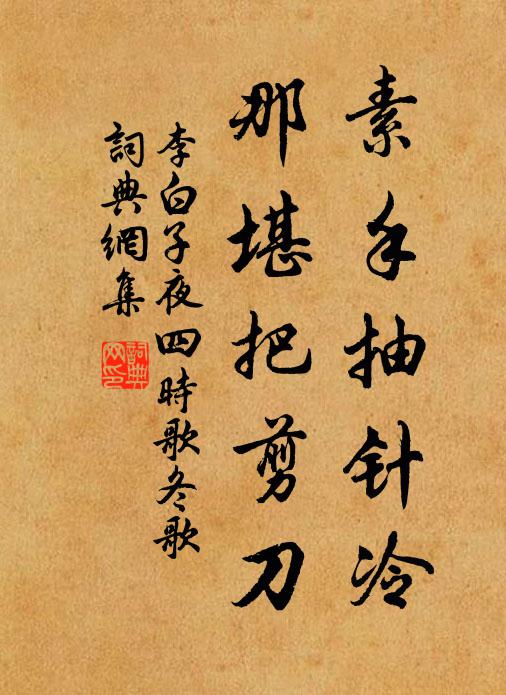 素手抽针冷
那堪把剪刀
李白子夜四時歌冬歌
詞典網集
詞典網印